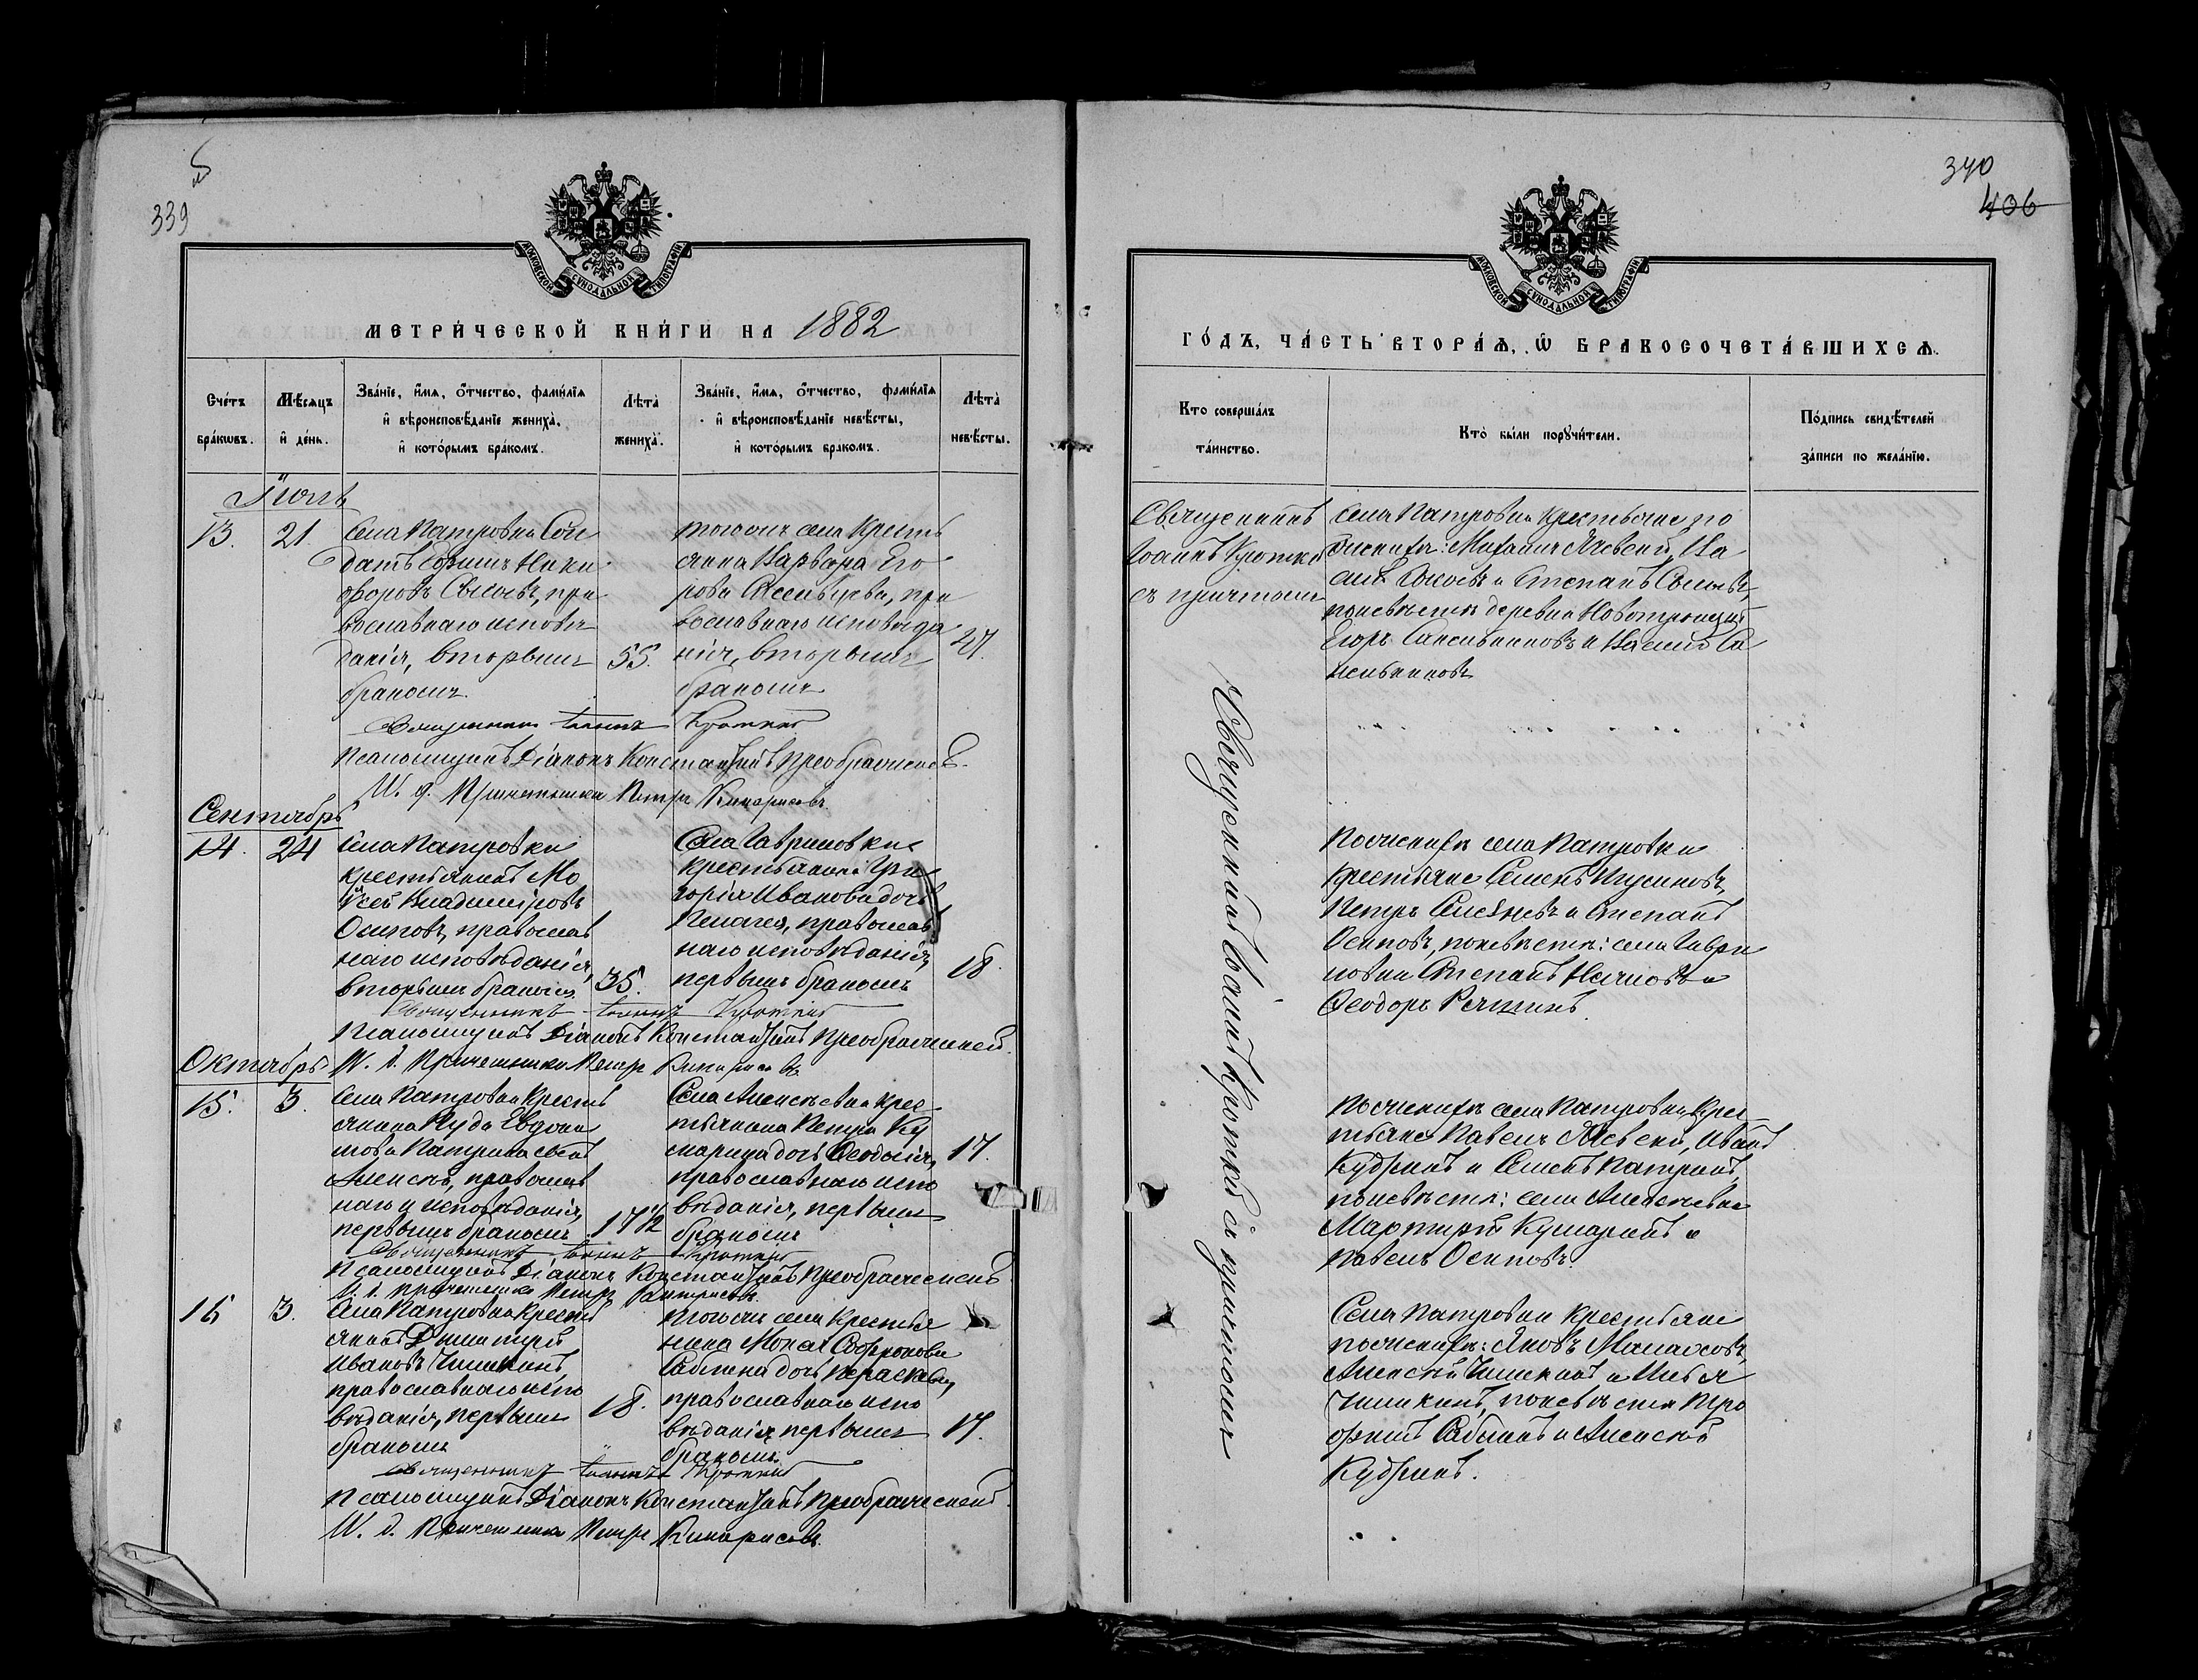 5
339
МОСКОВСКОЙ СУНОДАЛЬНОЙ ТИПОГРАФІИ
МЕТРИЧЕСКОЙ КНИГИ НА 1882
Счетъ браковъ.
Мѣсяцъ и день.
Званіе, имя, отчество, фамилія и вѣроисповѣданіе жениха, и которымъ бракомъ.
Лѣта жениха.
Званіе, имя, отчество, фамилія и вѣроисповѣданіе невѣсты, и которымъ бракомъ.
Лѣта невѣсты.
13. 21.
Села Патровки Сол
датъ Ники
форовъ пра
вославнаго исповѣ
данія, вторымъ
бракомъ.
55.
тогожъ села кресть
янка Варвара Его
рова пра
вославнаго исповѣда
нія, вторымъ
бракомъ
27.
Священникъ Іоаннъ Кроткій
Псаломщикъ Діаконъ Константинъ Преображенскій.
И. д. Причетника Петръ Кипарисовъ.
Сентябрь
14. 24
Села Патровки
крестьянинъ Мо
ѵсей Владиміровъ
Осиповъ, православ
наго исповѣданія,
вторымъ бракомъ.
35.
Села Гавриловки
крестьянина Гри
горія Иванова дочь
Пелагея, православ
наго исповѣданія,
первымъ бракомъ
18.
Священникъ Іоаннъ Кроткій
Псаломщикъ Діаконъ Константинъ Преображенскій.
Октябрь
И. д. Причетника Петръ Кипарисовъ
15. 3.
Села Патровки кресть
янина Евдоки
мова Патрина сынъ
Алексѣй, православ
наго исповѣданія,
первымъ бракомъ
17 1/2
Села Алексѣевки крес
тьянина Петра Ку
дочь Ѳеодосія,
православнаго испо
вѣданія, первымъ
бракомъ
17.
Священникъ Іоаннъ Кроткій
Псаломщикъ Діаконъ Константинъ Преображенскій
И. д. Причетника Петръ Кипарисовъ.
16 3.
Села Патровки кресть
янинъ Димитрій
Ивановъ Чишкинъ,
православнаго испо
вѣданія, первымъ
бракомъ
18.
тогожъ села крестья
нина Мокея Софронова
дочь Параскева,
православнаго испо
вѣданія первымъ
бракомъ.
17.
Священникъ Іоаннъ Кроткій
Псаломщикъ Діаконъ Константинъ Преображенскій.
И. д. Причетника Петръ Кипарисовъ.
340
406
МОСКОВСКОЙ СУНОДАЛЬНОЙ ТИПОГРАФІИ
ГОДЪ, ЧАСТЬ ВТОРАЯ, Ѡ БРАКОСОЧЕТАВШИХСЯ.
Кто совершалъ таинство.
Кто были поручители.
Подпись свидѣтелей записи по желанію.
Священникъ
Іоаннъ Кроткій
съ причтомъ
Села Патровки крестьяне по
женихѣ: Михаилъ Ва
и Степанъ
по невѣстѣ деревни
Егоръ и
Священникъ Іоаннъ Кроткій съ причтомъ
По женихѣ села Патровки
крестьяне Семенъ
Петръ и Степанъ
Осиповъ, по невѣстѣ: села Гаври
ловки Степанъ и
Ѳеодоръ
По женихѣ села Патровки крес
тьяне Павелъ Иванъ
Кудринъ и Семенъ Патринъ,
по невѣстѣ: села Алексѣевки
Мартирій и
Павелъ Осиповъ.
Села Патровки крестьяне
по женихѣ: Яковъ
Алексѣй Чишкинъ и Илья
Чишкинъ, по невѣстѣ Тро
фимъ и Алексѣй
Кудринъ.